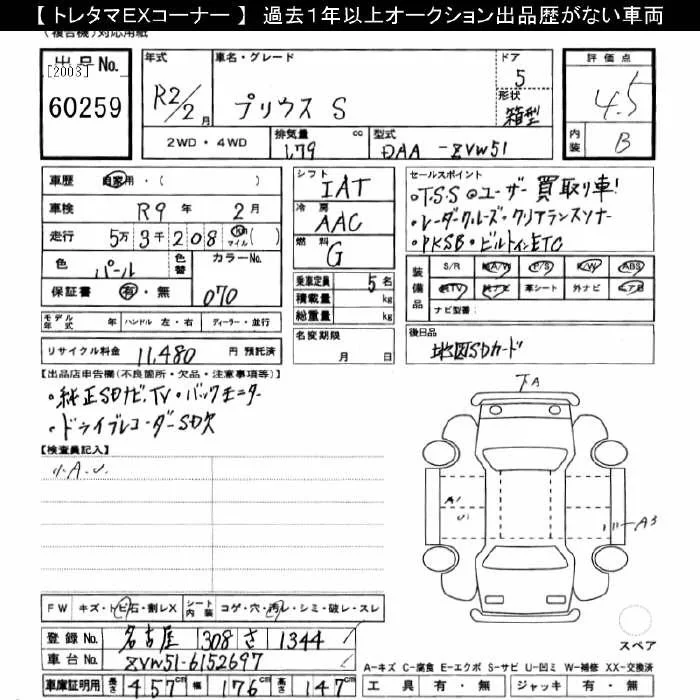 【 トレタマEXコーナー 】 過去1年以上オークション出品歴がない車両
(複合機)対応用紙
出品No.
[2003]
60259
年式
R2/2月
車名・グレード
プリウス S
ドア
5
形状
箱型
2WD・4WD
排気量 cc
1.79
型式
DAA-ZVW51
評価点
4.5
内装
B
車歴 自家用・( )
車検 R9年 2月
走行 5万3千208 Km マイル ( )
色 パール 色替
カラーNo.
070
保証書 有・無
シフト
IAT
冷房
AAC
燃料
G
乗車定員 5名
積載量 kg
総重量 kg
セールスポイント
・T.S.S ・ユーザー買取り車!
・レーダークルーズ・クリアランスソナー
・PKSB・ビルトインETC
装備品
S/R A/W P/S P/W ABS
純TV 純ナビ 革シート 外ナビ エアB
ナビ型番:
モデル年式 年 ハンドル 左・右 ディーラー・並行
リサイクル料金 11,480 円 預託済
名変期限
月 日
後日品
地図SDカード
【出品店申告欄(不良箇所・欠品・注意事項等)】
・純正SDナビ、TV・バックモニター
・ドライブレコーダーSD欠
【検査員記入】
F W キズ・トビ石・割レX シート内装 コゲ・穴・汚レ・シミ・破レ・スレ
登録No. 名古屋 308 さ 1344
車台No. ZVW51-6152697
車庫証明用 長さ 457cm 幅 176cm 高さ 147cm
A1
A3
スペア
A-キズ C-腐食 E-エクボ S-サビ U-凹ミ W-補修 XX-交換済
工具 有・無 ジャッキ 有・無